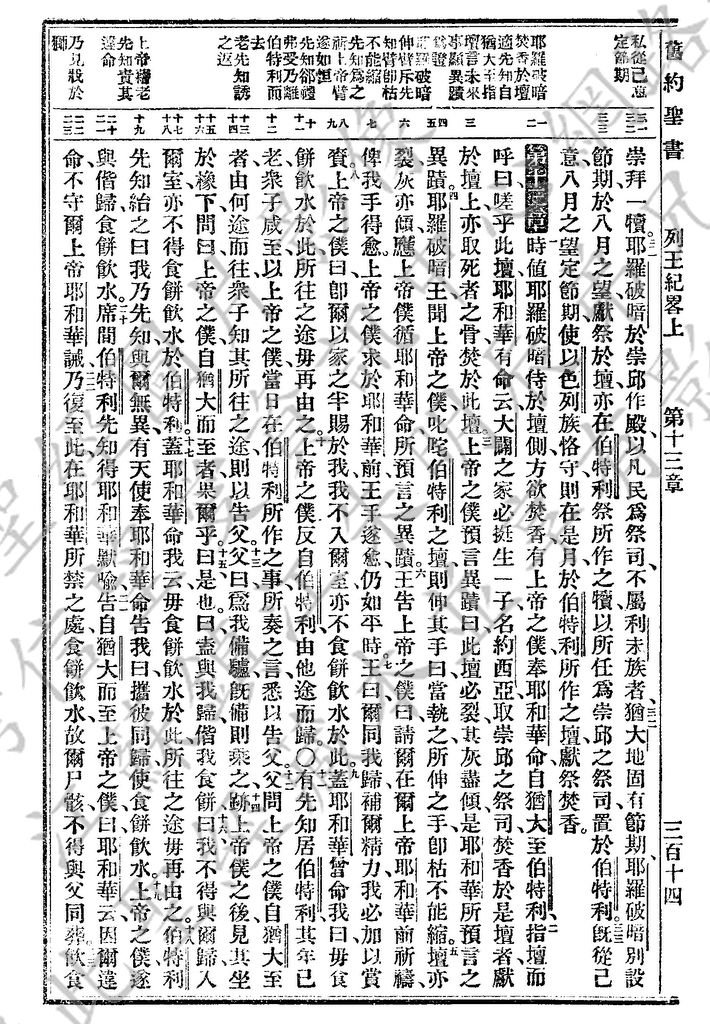 舊約聖書 列王紀畧上 第十三章 三百十四
私從己意
定節期
耶羅破暗
焚香於壇
適先知自
猶大至指
壇言未來
事顯異蹟
爲證
耶羅破暗
伸臂斥先
知臂卽枯
不能縮
先知爲之
祈上帝臂
遂如恒
先知卻禮
弗受乃離
伯特利而
去
老先知誘
之返
上帝藉老
先知責其
違命
乃見戕於
獅
崇拜一犢耶羅破暗於崇邱作殿以凡民爲祭司不屬利未族者猶大地固有節期耶羅破暗別設
節期於八月之望獻祭於壇亦在伯特利祭所作之犢以所任爲崇邱之祭司置於伯特利旣從己
意八月之望定節期使以色列族恪守則在是月於伯特利所作之壇獻祭焚香
第十三章時值耶羅破暗侍於壇側方欲焚香有上帝之僕奉耶和華命自猶大至伯特利指壇而
呼曰嗟乎此壇耶和華有命云大闢之家必挺生一子名約西亞取崇邱之祭司焚香於是壇者獻
於壇上亦取死者之骨焚於此壇上帝之僕預言異蹟曰此壇必裂其灰盡傾是耶和華所預言之
異蹟耶羅破暗王聞上帝之僕叱咤伯特利之壇則伸其手曰當執之所伸之手卽枯不能縮壇亦
裂灰亦傾應上帝僕循耶和華命所預言之異蹟王告上帝之僕曰請爾在爾上帝耶和華前祈禱
俾我手得愈上帝之僕求於耶和華前王手遂愈仍如平時王曰爾同我歸補爾精力我必加以賞
賚上帝之僕曰卽爾以家之半賜於我我不入爾室亦不食餅飲水於此蓋耶和華曾命我曰毋食
餅飲水於此所往之途毋再由之上帝之僕反自伯特利由他途而歸〇有先知居伯特利其年已
老衆子咸至以上帝之僕當日在伯特利所作之事所奏之言悉以告父父問上帝之僕自猶大至
者由何途而往衆子知其所往之途則以告父父曰爲我備驢旣備則乘之跡上帝僕之後見其坐
於橡下問曰上帝之僕自猶大而至者果爾乎曰是也曰盍與我歸偕我食餅飲水曰我不得與爾歸入
爾室亦不得食餅飲水於伯特利蓋耶和華命我云毋食餅飲水於此所往之途毋再由之伯特利
先知紿之曰我乃先知與爾無異有天使奉耶和華命告我曰攜彼同歸使食餅飲水上帝之僕遂
與偕歸食餅飲水席間伯特利先知得耶和華默喩告自猶大而至上帝之僕曰耶和華云因爾違
命不守爾上帝耶和華誡乃復至此在耶和華所禁之處食餅飲水故爾尸骸不得與父同葬飲食